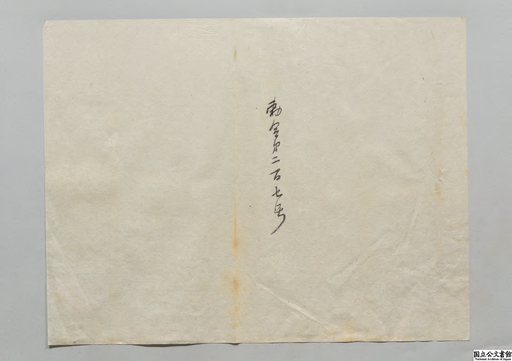 勅令第二百七号
国立公文書館
National Archives of Japan